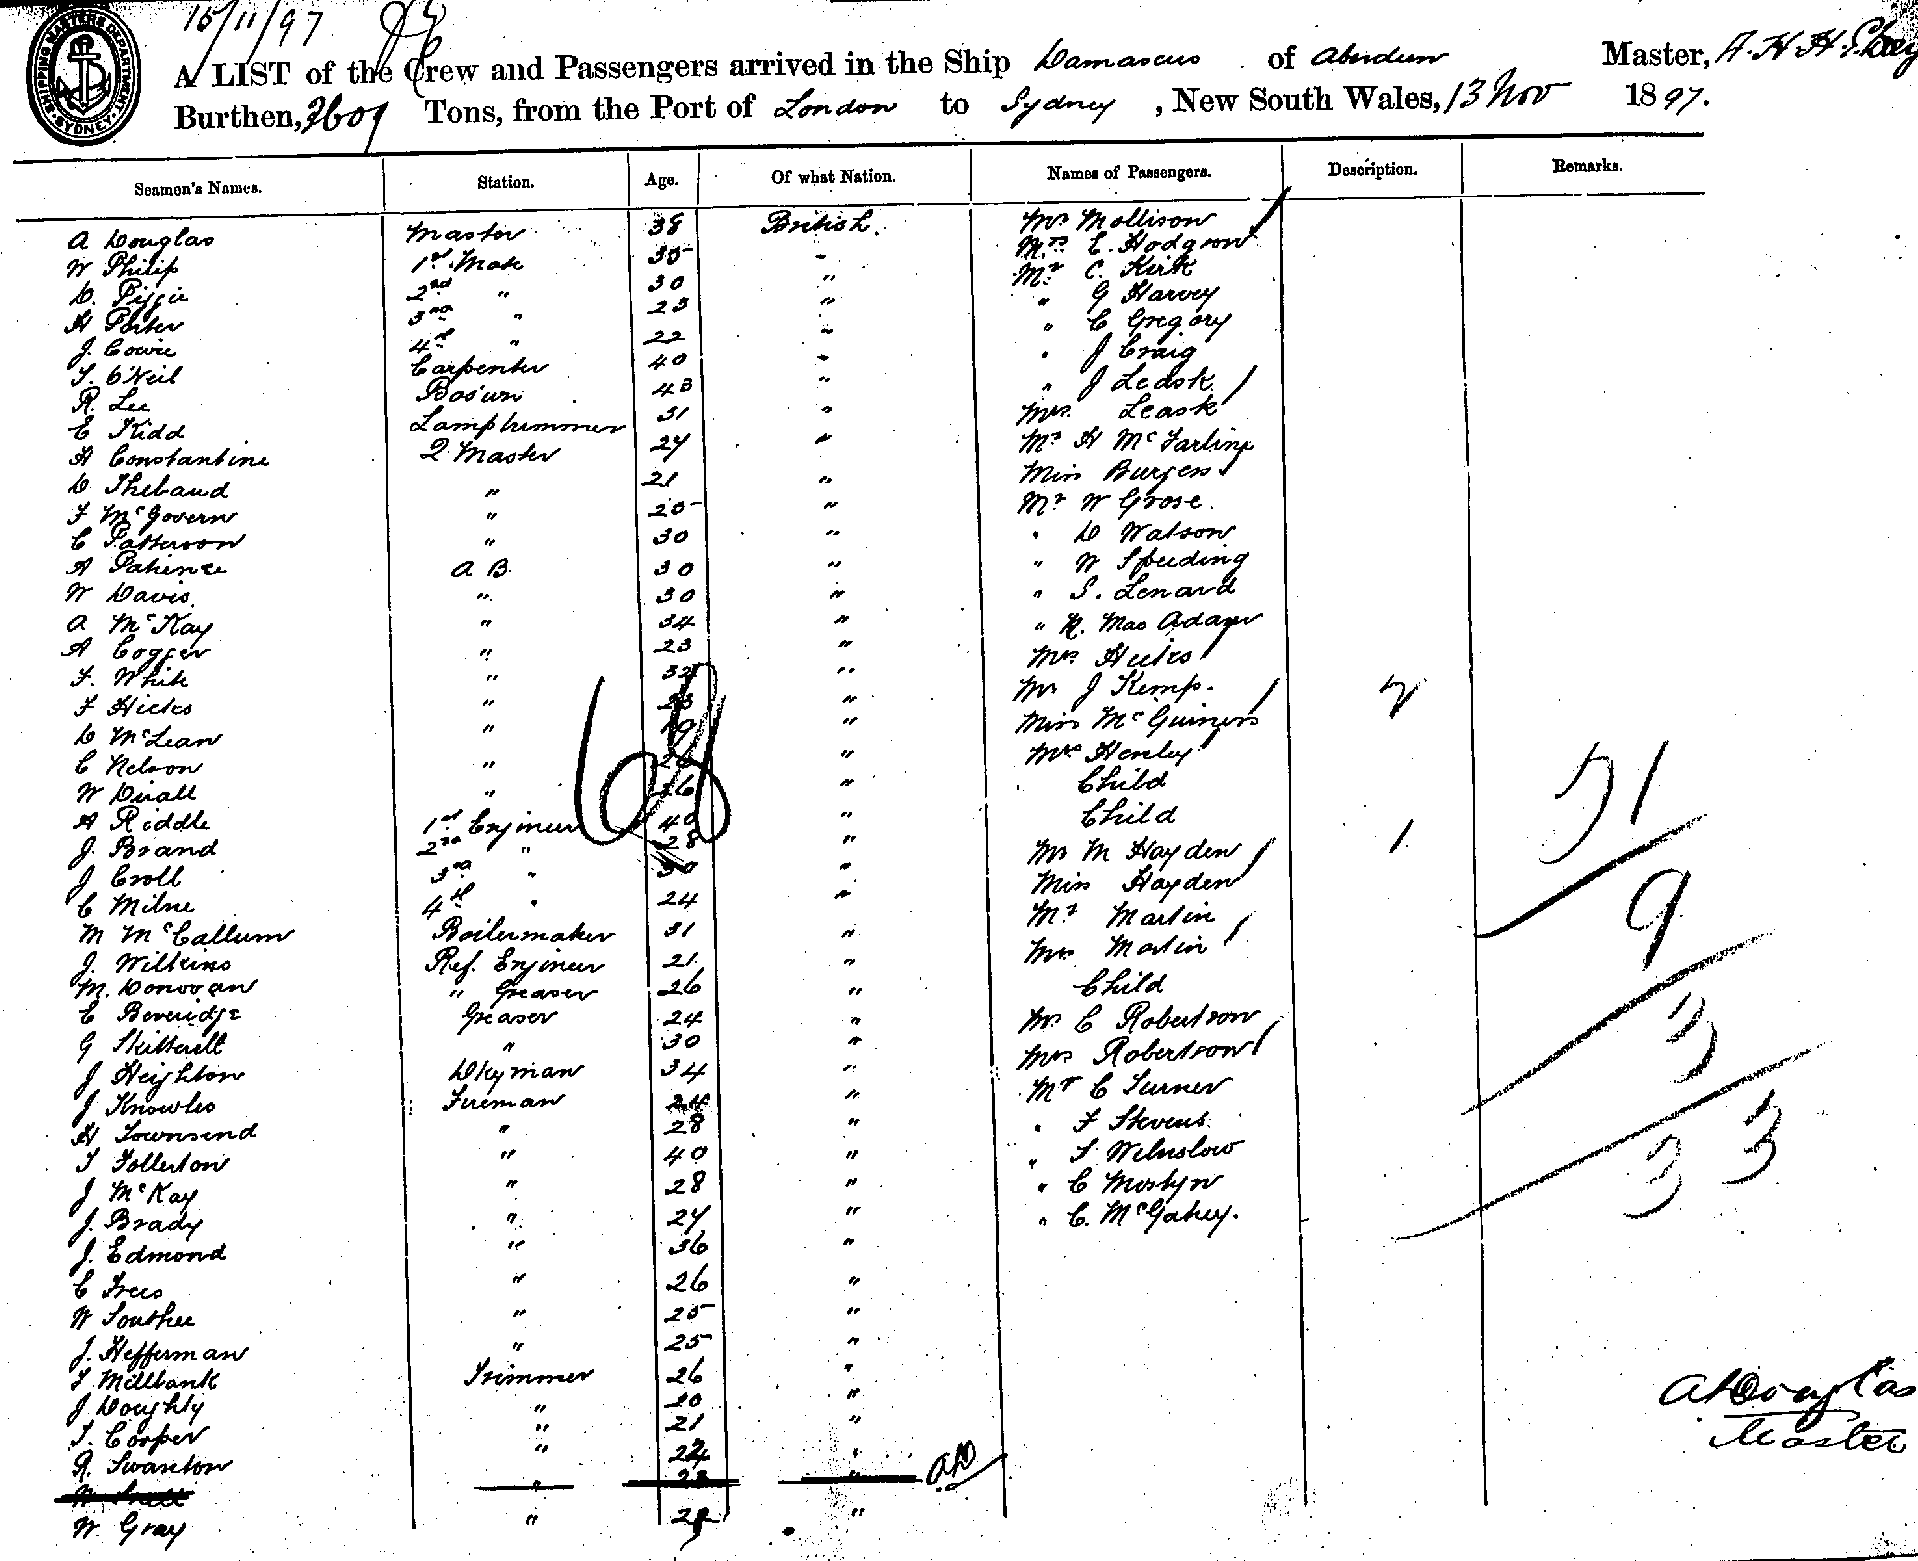 15/11/97
SHIPPING MASTERS DEPARTMENT SYDNEY
A LIST of the Crew and Passengers arrived in the Ship Damascus of Aberdeen Master, A. H. H.
Burthen, 3609 Tons, from the Port of London to Sydney, New South Wales, 13 Nov 1897.
Seamen's Names. Station. Age. Of what Nation. Names of Passengers. Description. Remarks.
A Douglas Master 38 British. Mr Mollison
W Philip 1st Mate 35 " Mrs E. Hodgson
D. Piggie 2nd " 30 " Mr C. Kirk
H Porter 3rd " 23 " " G Harvey
J. Cowie 4th " 22 " " C Gregory
T. O'Neil Carpenter 40 " " J Craig
R. Lee Bos'un 43 " " J Leask
E Kidd Lamptrimmer 31 " Mrs. Leask
A Constantine Q. Master 27 " Mr H McFarling
D Thebaud " 21 " Miss Burgess
F McGovern " 25 " Mr W Grose.
C Patterson " 30 " " D Watson
A Patience A B. 30 " " W Speeding
W Davis. " 30 " " S. Lenard
A McKay " 34 " " R. Mac Adam
A Cogger " 23 " Mrs Hicks
F. White " 32 " Mr J Kemp.
F Hicks " 23 " Miss McGuiness 2
D McLean " 19 " Mrs Henley
C Nelson " "  Child
W Duall " 26 " Child
A Riddle 1st Engineer 40 " Mr M Hayden 1
J. Brand 2nd " 28 " Miss Hayden
J Croll 3rd " 30 " Mr Martin
C Milne 4th " 24 " Mrs Martin
M McCallum Boilermaker 31 " Child
J. Wilkins Ref. Engineer 21 " Mr C Robertson
M. Donovan " Greaser 26 " Mrs Robertson
C Beveridge Greaser 24 " Mr C Turner
G Skitterell " 30 " " F Stevens
J Heighton Dkyman 34 " " T. Winslow
J Knowles Fireman 24 " " C Mostyn
H Townsend " 28 " " C. McGahey.
T Follerton " 40 "
J McKay " 28 "
J. Brady " 27 "
J. Edmond " 36 "
C Frees " 26 "
W Southee " 25 "
J. Hefferman " 25 "
T Millbank Trimmer 26 "
J Doughty " 20 "
T. Cooper " 21 "
R. Swanton " 22 "
" 23 " AD
W Gray " "
68
51
9
3
33
A Douglas
Master